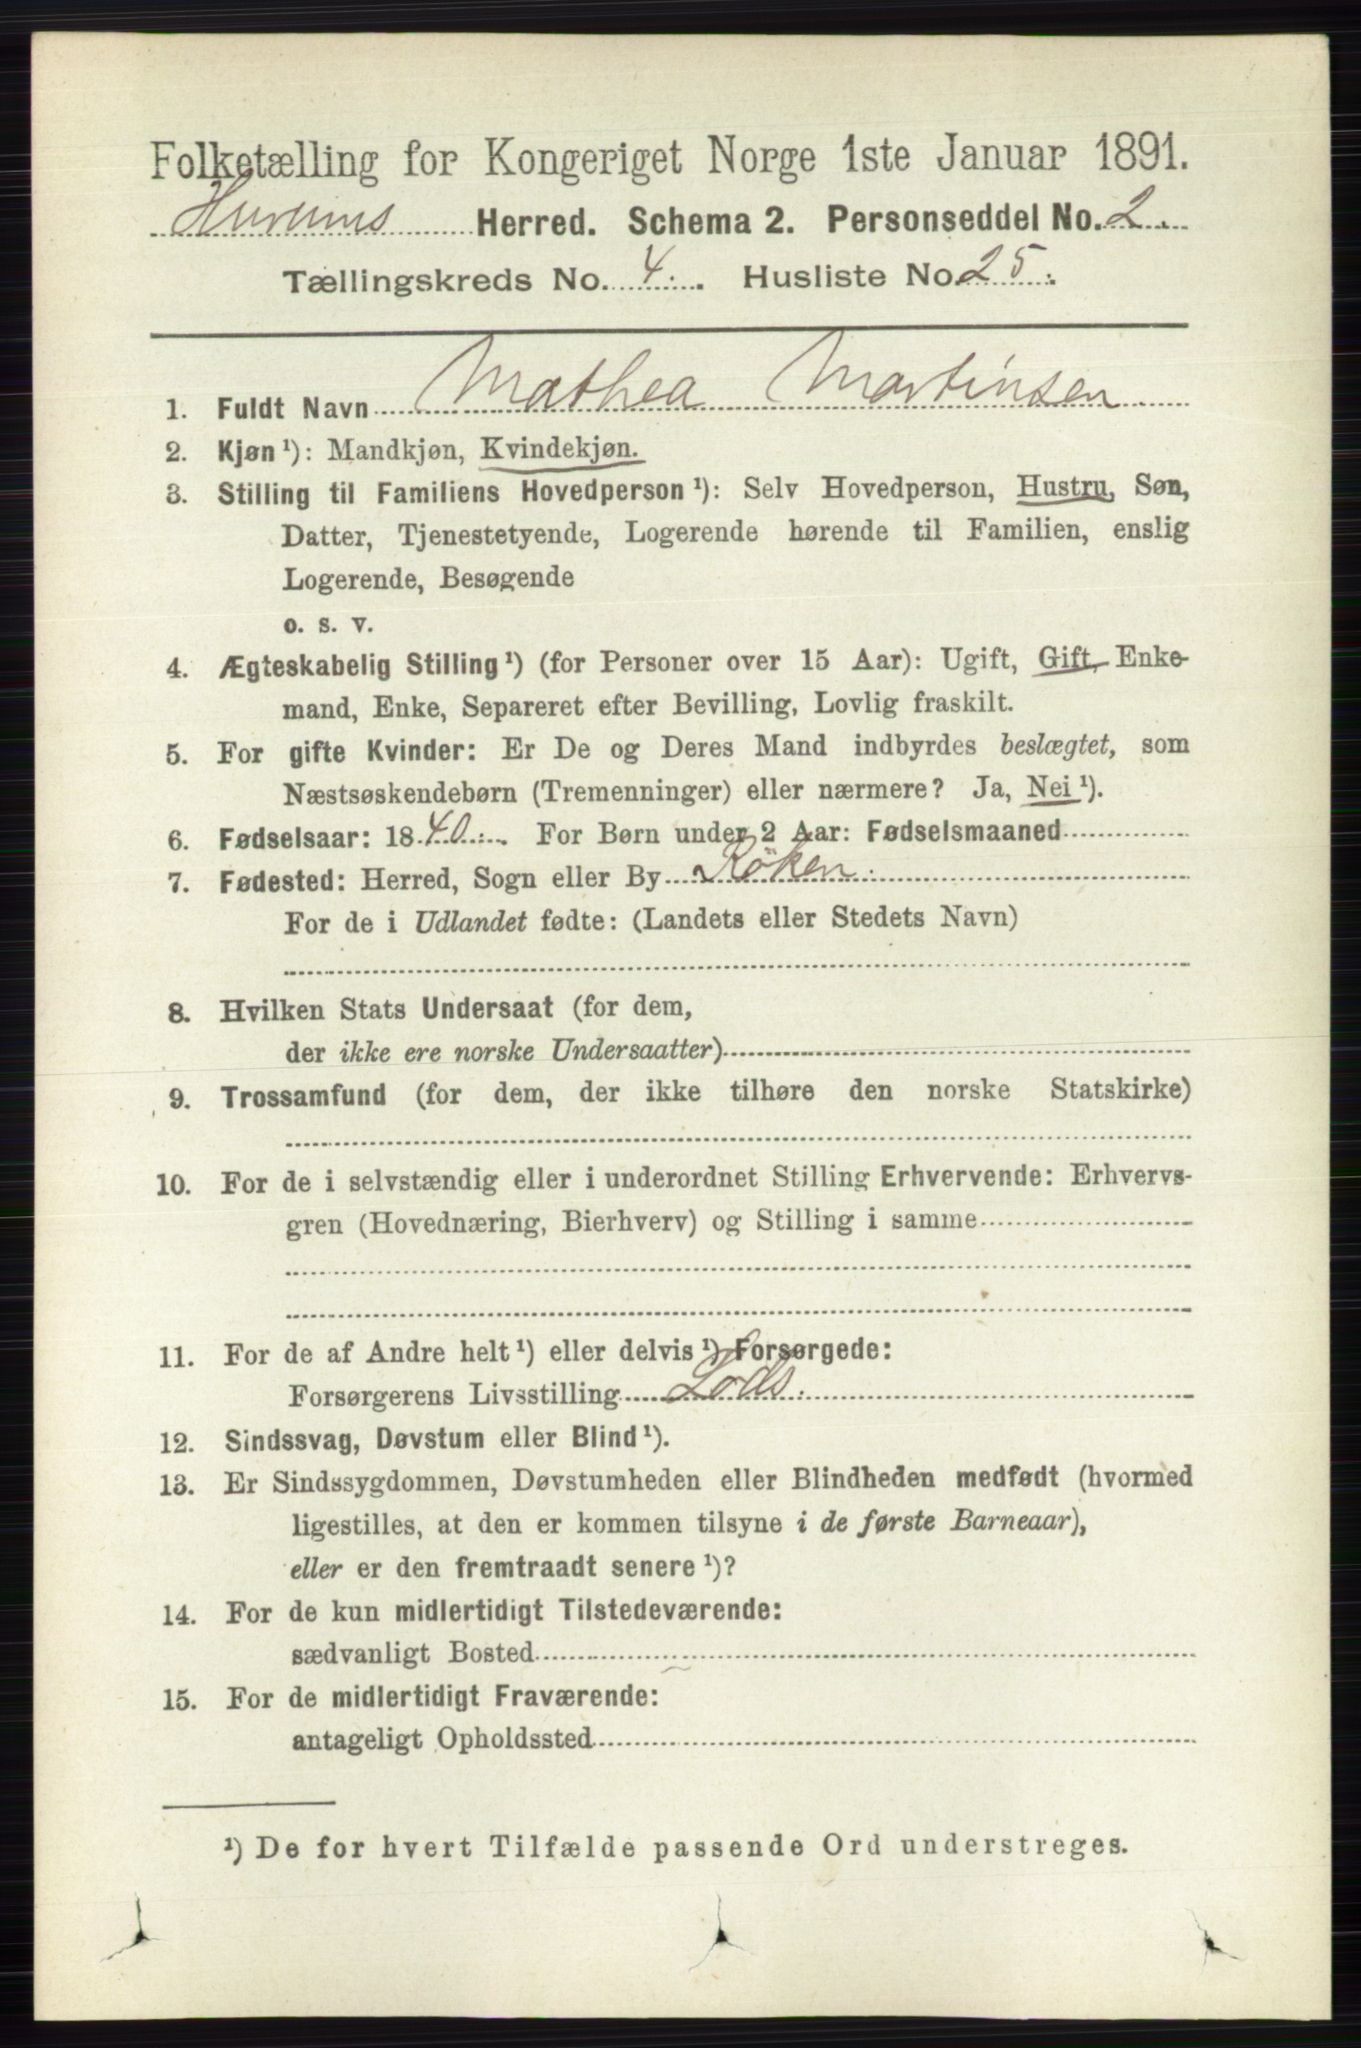 Folketælling for Kongeriget Norge 1ste Januar 1891.
Hurums Herred. Schema 2. Personseddel No. 2.
Tællingskreds No. 4. Husliste No. 25.
1. Fuldt Navn Mathea Martinsen
2. Kjøn ¹): Mandkjøn, Kvindekjøn.
3. Stilling til Familiens Hovedperson ¹): Selv Hovedperson, Hustru, Søn,
Datter, Tjenestetyende, Logerende hørende til Familien, enslig
Logerende, Besøgende
o. s. v.
4. Ægteskabelig Stilling ¹) (for Personer over 15 Aar): Ugift, Gift, Enke-
mand, Enke, Separeret efter Bevilling, Lovlig fraskilt.
5. For gifte Kvinder: Er De og Deres Mand indbyrdes beslægtet, som
Næstsøskendebørn (Tremenninger) eller nærmere? Ja, Nei ¹).
6. Fødselsaar: 1840. For Børn under 2 Aar: Fødselsmaaned
7. Fødested: Herred, Sogn eller By Röken.
For de i Udlandet fødte: (Landets eller Stedets Navn)
8. Hvilken Stats Undersaat (for dem,
der ikke ere norske Undersaatter)
9. Trossamfund (for dem, der ikke tilhøre den norske Statskirke)
10. For de i selvstændig eller i underordnet Stilling Erhvervende: Erhvervs-
gren (Hovednæring, Bierhverv) og Stilling i samme
11. For de af Andre helt ¹) eller delvis ¹) Forsørgede:
Forsørgerens Livsstilling Lods.
12. Sindssvag, Døvstum eller Blind ¹).
13. Er Sindssygdommen, Døvstumheden eller Blindheden medfødt (hvormed
ligestilles, at den er kommen tilsyne i de første Barneaar),
eller er den fremtraadt senere ¹)?
14. For de kun midlertidigt Tilstedeværende:
sædvanligt Bosted
15. For de midlertidigt Fraværende:
antageligt Opholdssted
¹) De for hvert Tilfælde passende Ord understreges.